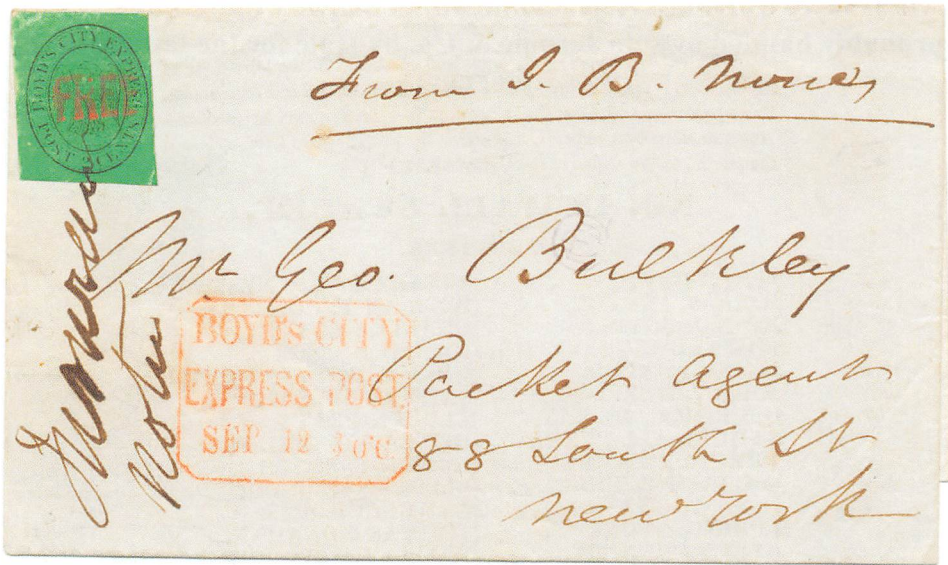 BOYD'S CITY EXPRESS
POST 2 CENTS
FREE
From J. B. Nones
Mr Geo. Bulkley
Packet Agent
88 South St
New York
BOYD'S CITY
EXPRESS POST.
SEP 12 3 O'C.
Note